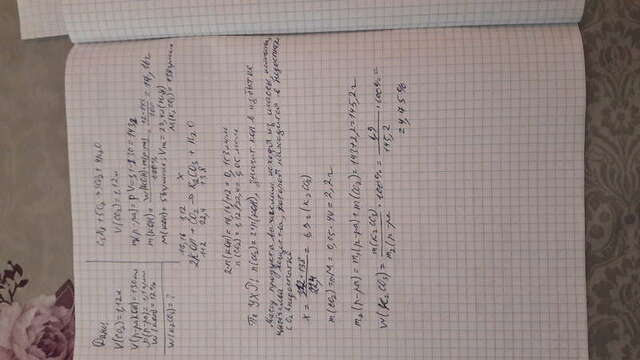 Дано
V(CO₂) = 1,12л
V(р-ра)KOH = 130мл
ρ(р-ра) = 1,1 г/мл
W(KOH) = 12%
W(K₂CO₃) = ?
C₃H₈ + 5O₂ → 3CO₂ + 4H₂O
V(CO₂) = 1,12л
m(р-ра) = ρV = 1,1·130 = 143г
m(KOH) = W(KOH)·m(р-ра)/100% = 12·143/100 = 17,16г
M(KOH) = 56г/моль; Vm = 22,4л (н.у)
M(K₂CO₃) = 138г/моль
17,16 1,12 x
2KOH + CO₂ → K₂CO₃ + H₂O
112 22,4 138
2·n(KOH) = 17,16/112 = 0,153моль
n(CO₂) = 1,12/22,4 = 0,05 моль
По УХР: n(CO₂) = 2·n(KOH), значит KOH в избытке
Массу продукта вычислим исходя из массы
вещества, которое находится в недостатке
CO₂ в недостатке
x = 1,12·138/22,4 = 6,9г (K₂CO₃)
m(CO₂) = nM = 0,05·44 = 2,2г
m₂(р-ра) = m₁(р-ра) + m(CO₂) = 143+2,2 = 145,2г
W(K₂CO₃) = m(K₂CO₃)/m₂(р-ра · 100% = 6,9/145,2 · 100% =
= 4,75%